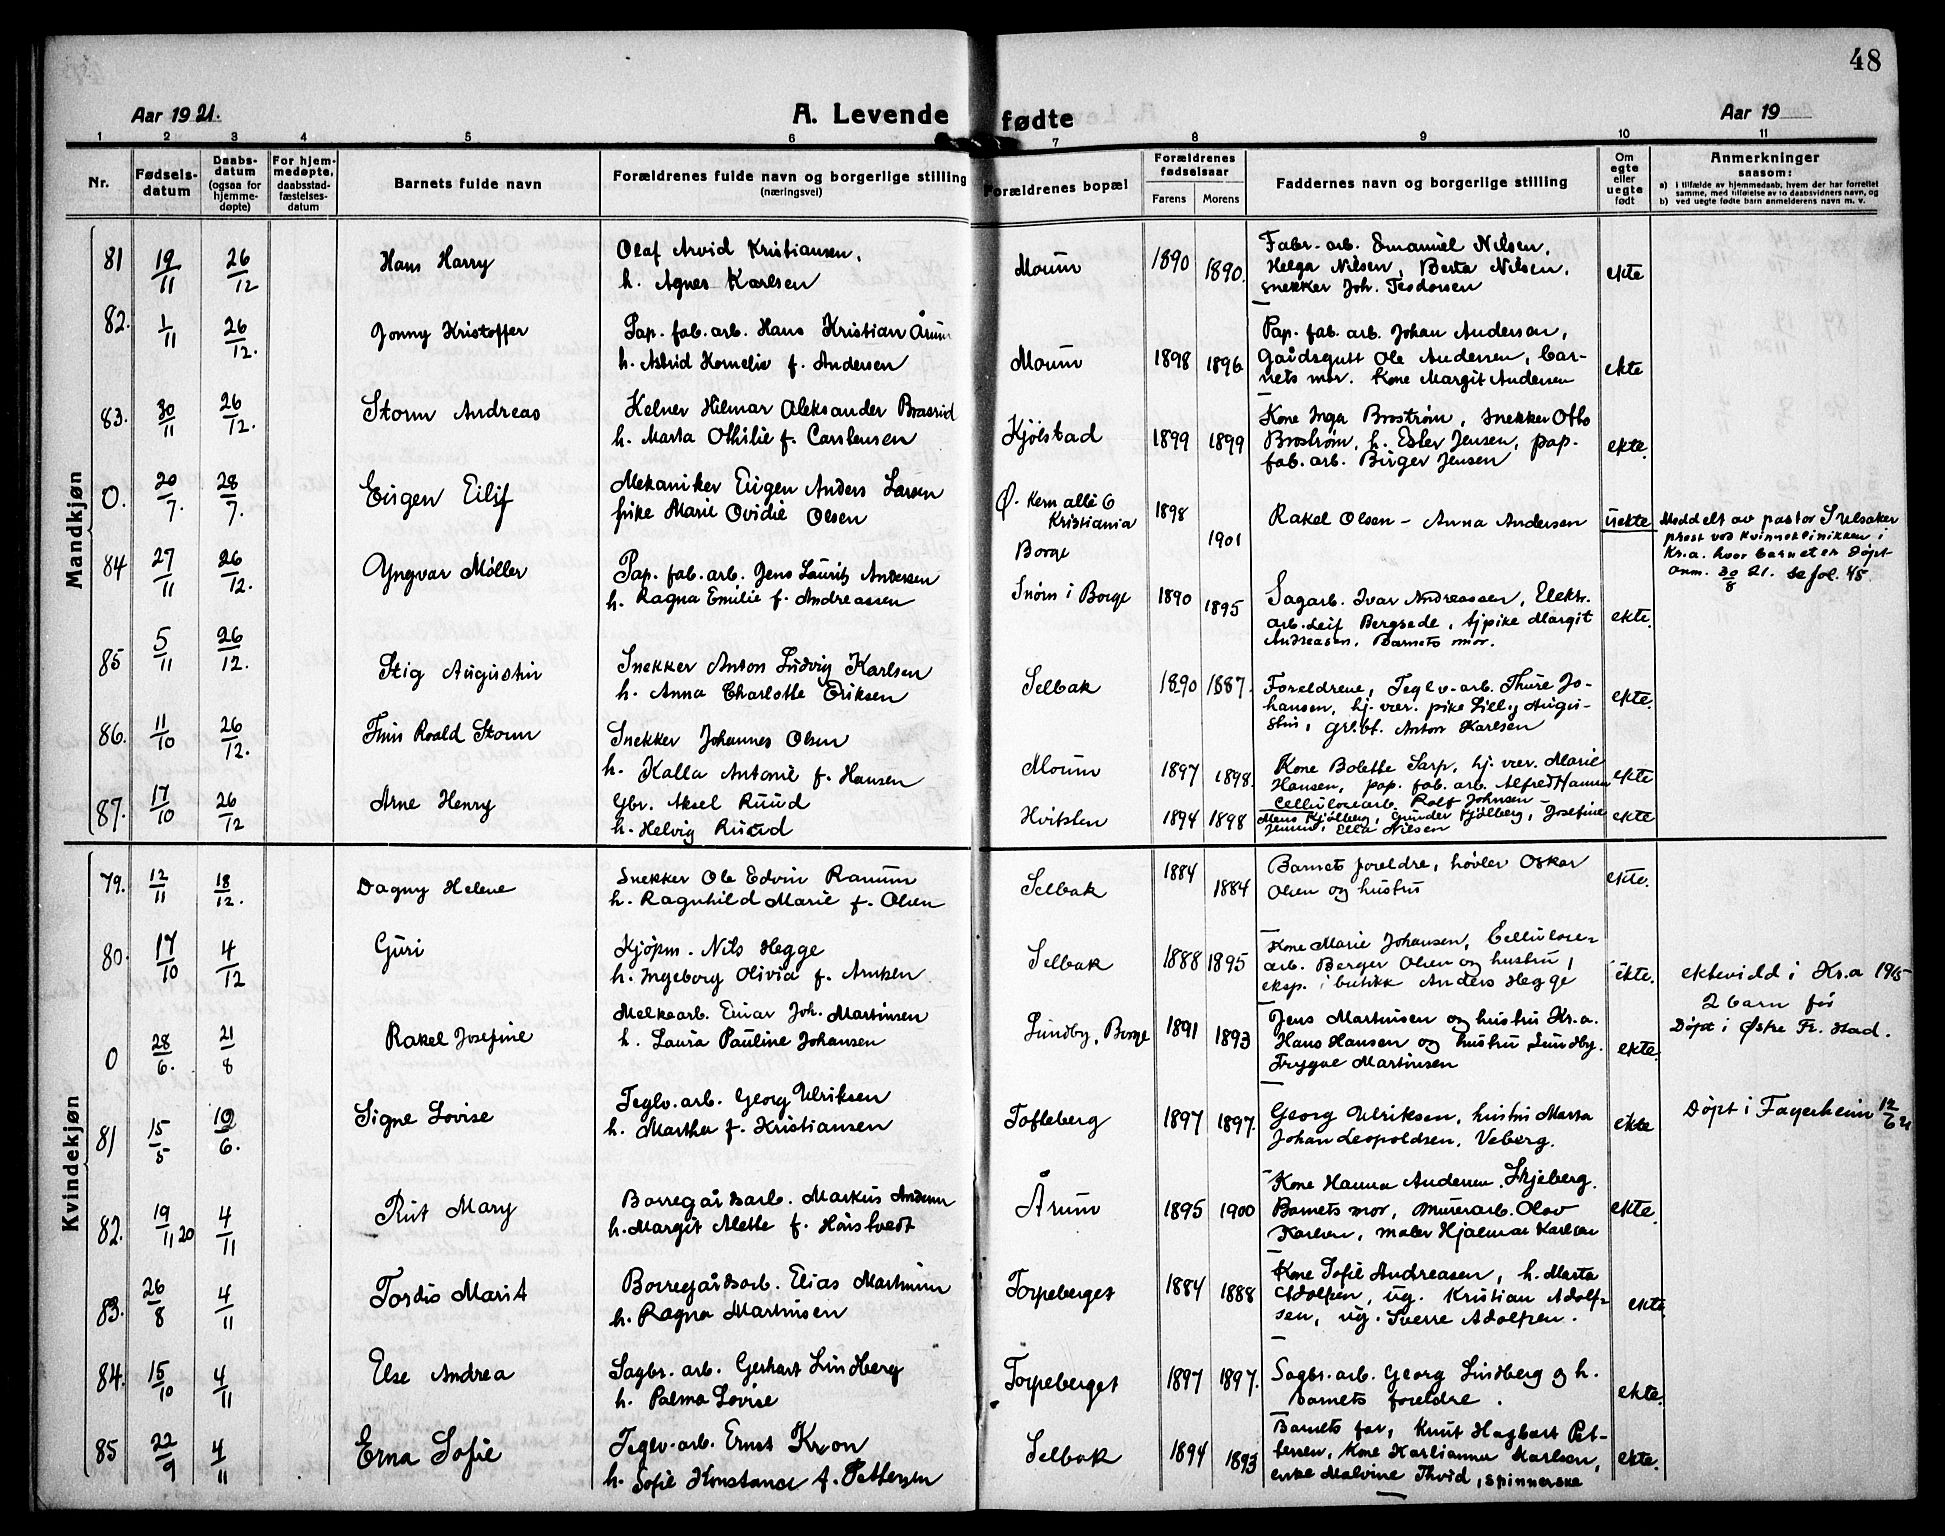 48
Aar 1921.
A. Levende fødte
Aar 19
1 2 3 4 5 6 7 8 9 10 11
Nr.
Fødsels-
datum
Daabs-
datum
(ogsaa for
hjemme-
døpte)
For hjem-
medøpte,
daabsstad-
fæstelses-
datum
Barnets fulde navn
Forældrenes fulde navn og borgerlige stilling
(næringsvei)
Forældrenes bopæl
Forældrenes
fødselsaar
Farens Morens
Faddernes navn og borgerlige stilling
Om
egte
eller
uegte
født
Anmerkninger
saasom:
a) i tilfælde av hjemmedaab, hvem der har forrettet
samme, med tilføielse av to daabsvidners navn, og
b) ved uegte fødte barn anmelderens navn m. v.
Mandkjøn
81 19/11 26/12 Hans Harry
Olaf Arvid Kristiansen,
h. Agnes Karlsen
Moum 1890 1890.
Fabr. arb. Emanuel Nilsen,
Helga Nilsen, Berta Nilsen,
snekker Joh. Teodorsen
ekte
82. 1/11 26/12. Jonny Kristoffer
Pap. fab. arb. Hans Kristian Årum
h. Astrid Kornelie f. Andersen
Moum 1898 1896.
Pap. fab. arb. Johan Andersen,
Gårdsgutt Ole Andersen, bar-
nets mor. Kone Margit Andersen
ekte
83. 30/11 26/12. Storm Andreas
Kelner Hilmar Aleksander
h. Marta Othilie f. Carstensen
Kjölstad 1899 1899
Kone Inga Broström, snekker Otto
Broström, h. Ester Jensen, pap.
fab. arb. Birger Jensen
ekte.
0. 20/7. 28/7. Eugen Eilif
Mekaniker Eugen Anders Larsen
pike Marie Ovidie Olsen
Ø. Kern allé 6
Kristiania
Borge
1898 1901
Rakel Olsen - Anna Andersen
uekte
Meddelt av pastor
prest ved kvinneklinikken i
Kr.a. hvor barnet er döpt
anm. 30/8 21. se fol. 45.
84 27/11 26/12. Yngvar Møller
Pap. fab. arb. Jens Laurits Andersen
h. Ragna Emilie f. Andreassen
i Borge 1890 1895
Sagarb. Ivar Andreassen, Elektr.
arb. Leif Bergsede, tjpike Margit
Andreasen, Barnets mor.
ekte.
85 5/11 26/12. Stig Augustin
Snekker Anton Ludvig Karlsen
h. Anna Charlotte Eriksen
Selbak 1890 1887.
Foreldrene, Teglv. arb. Thure Jo-
hansen, hj. vær. pike Lilly Augu-
stin, gr.bt. Anton Karlsen
ekte.
86. 11/10 26/12. Finn Roald Storm
Snekker Johannes Olsen
h. Kalla Antonie f. Hansen
Moum 1897 1898.
Kone Bolette Sarp, hj. vær. Marie
Hansen, pap. fab. arb. Alfred Hansen
Cellulosearb. Rolf Johnsen
ekte
87. 17/10 26/12 Arne Henry
Gbr. Aksel Ruud
h. Helvig Ruud
Hvitsten 1894 1898
Mens Kjölberg, Gunder Kjölberg, Josefine
Jensen, Ella Nilsen
ekte
Kvindekjøn
79. 12/11 18/12. Dagny Helene
Snekker Ole Edvin Ramum
h. Ragnhild Marie f. Olsen
Selbak 1884 1884
Barnets foreldre, høvler Oskar
Olsen og hustru
ekte.
80. 17/10 4/12 Guri
Kjöpm. Nils Hegge
h. Ingeborg Olivia f. Arntzen
Selbak 1888 1895
Kone Marie Johansen, Cellulose-
arb. Berger Olsen og hustru,
eksp. i butikk Anders Hegge
ekte.
ektevidd i Kr.a 1915
2 barn før
0 28/6. 21/8 Rakel Josefine
Melkearb. Einar Joh. Martinsen
h. Laura Pauline Johansen
Lundby, Borge 1891 1893
Jens Martinsen og hustru Kr.a.
Hans Hansen og hustru, Lundby.
Trygve Martinsen
ekte.
Döpt i Østre Fr.stad.
81 15/5 19/6. Signe Lovise
Teglv. arb. Georg Ulriksen
h. Martha f. Kristiansen
Tofteberg 1897 1897.
Georg Ulriksen, hustru Marta
Johan Leopoldsen, Veberg.
ekte
Döpt i Fagerheim 12/6 21
82. 19/11 20 4/11 Rut Mary
Borregårdsarb. Markus Andersen
h. Margit Mette f.
Årum 1895 1900
Kone Hanna Andersen, Skjeberg.
Barnets mor, murerarb. Olav
Karlsen, maler Hjalmar Karlsen
ekte.
83. 26/8 4/11 Tordis Marit
Borregårdsarb. Elias Martinsen
h. Ragna Martinsen
Torpeberget 1884 1888
Kone Sofie Andreasen, h. Marta
Adolfsen, ug. Kristian Adolf-
sen, ug. Sverre Adolfsen.
ekte
84. 15/10 4/11 Else Andrea
Sagbr. arb. Gerhart Lindberg
h. Palma Lovise
Torpeberget 1897 1897.
Sagbr. arb. Georg Lindberg og h.
barnets foreldre.
ekte.
85 22/9 4/11 Erna Sofie
Teglv. arb. Ernst Kroon
h. Sofie Konstanse f. Pettersen
Selbak 1894 1893
Barnets far, Knut Hagbart Pet-
tersen, Kone Karlianne Karlsen,
enke Malvine Thvid, spinnerske
ekte.